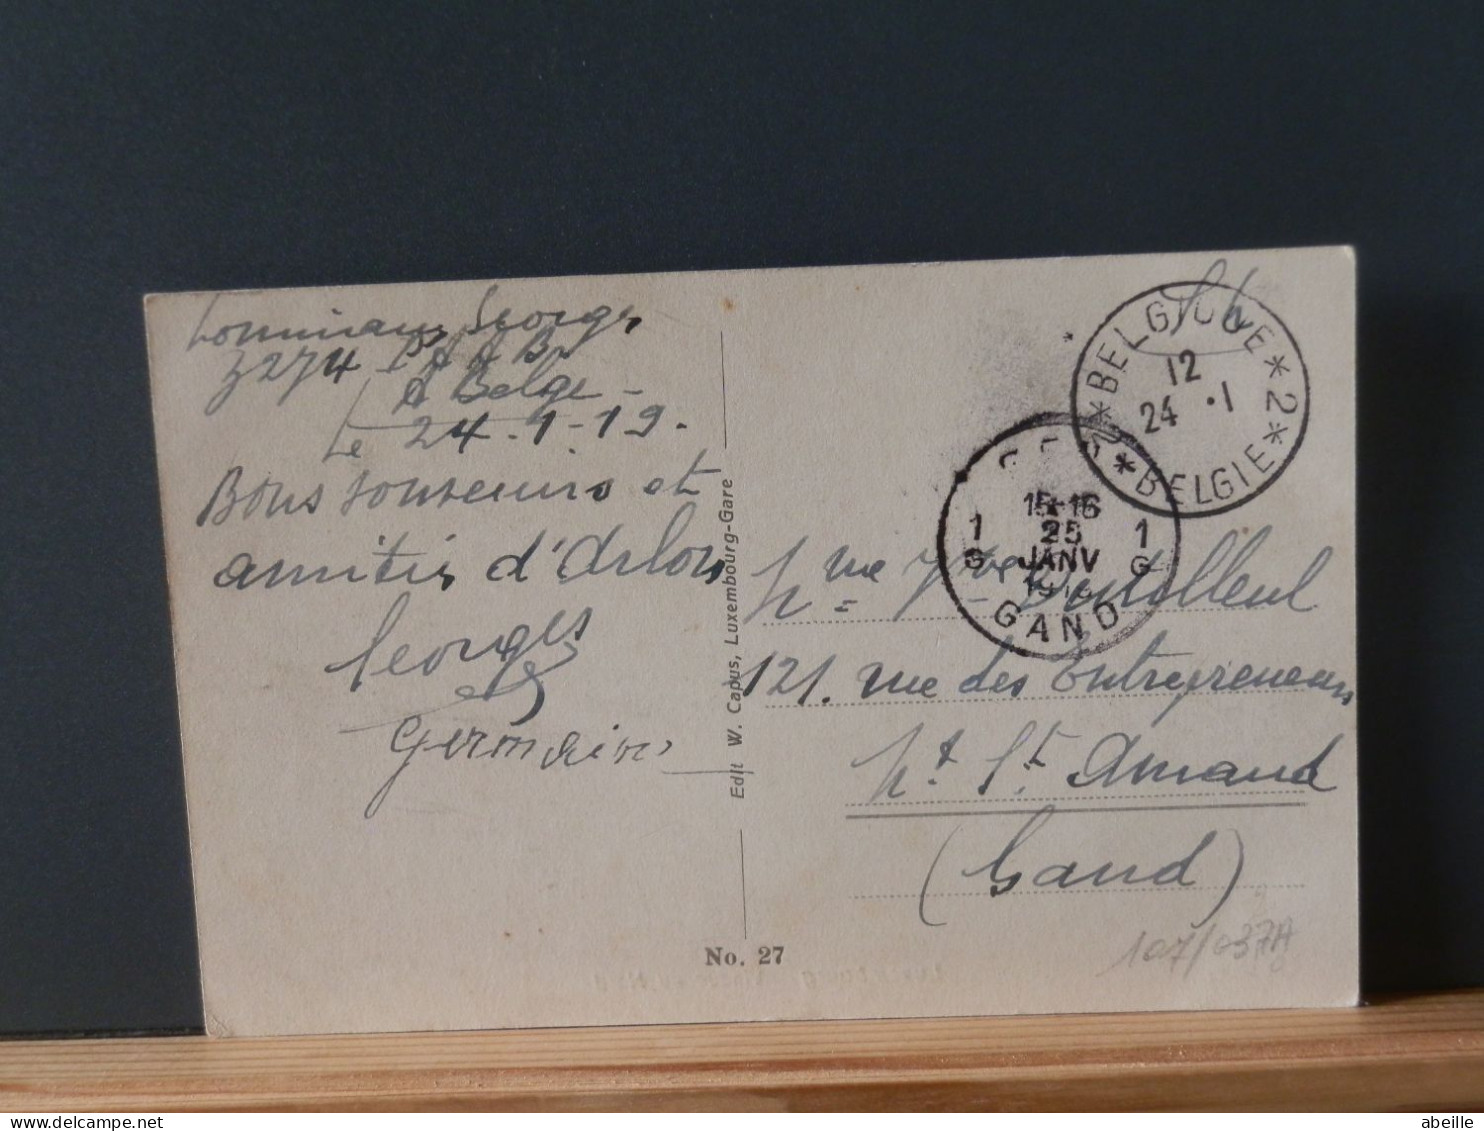 Georges
Z 274 P A A B
A Belge -
Le 24-1-19.
Bons souvenirs et
amitiés d'Arlon
Georges
Germaine
Edit W. Capus, Luxembourg-Gare
No. 27
S M
*BELGIQUE*2*
12
24 .1
*BELGIE
15-16
1 25 1
G JANV G
GAND
121. rue des Entrepreneurs
Mt St Amand
(Gand)
107/037A
delcampe.net
abeille